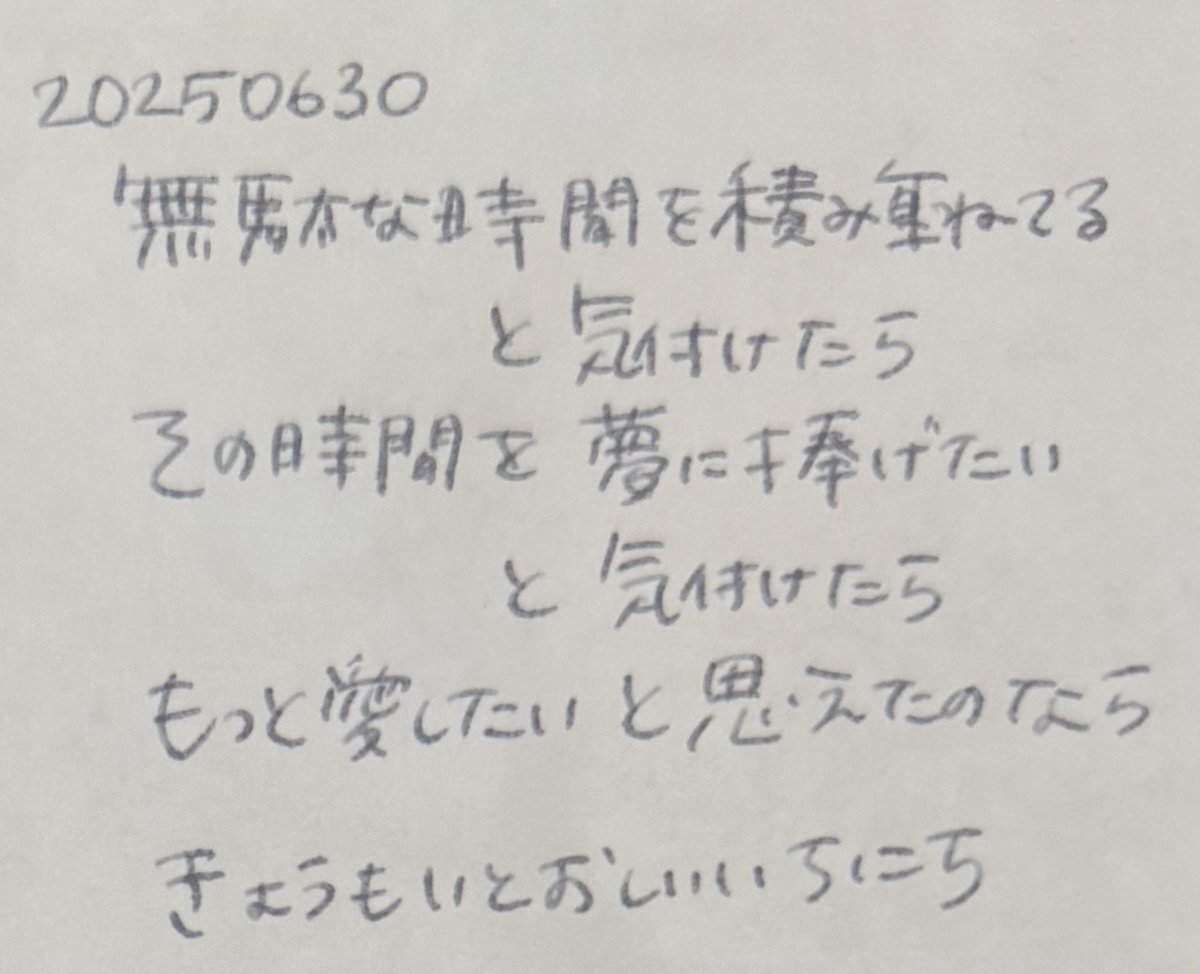 20250630
無駄な時間を積み重ねてる
と気付けたら
その時間を夢に捧げたい
と気付けたら
もっと愛したいと思えたのなら
きょうもいとおしいいちにち